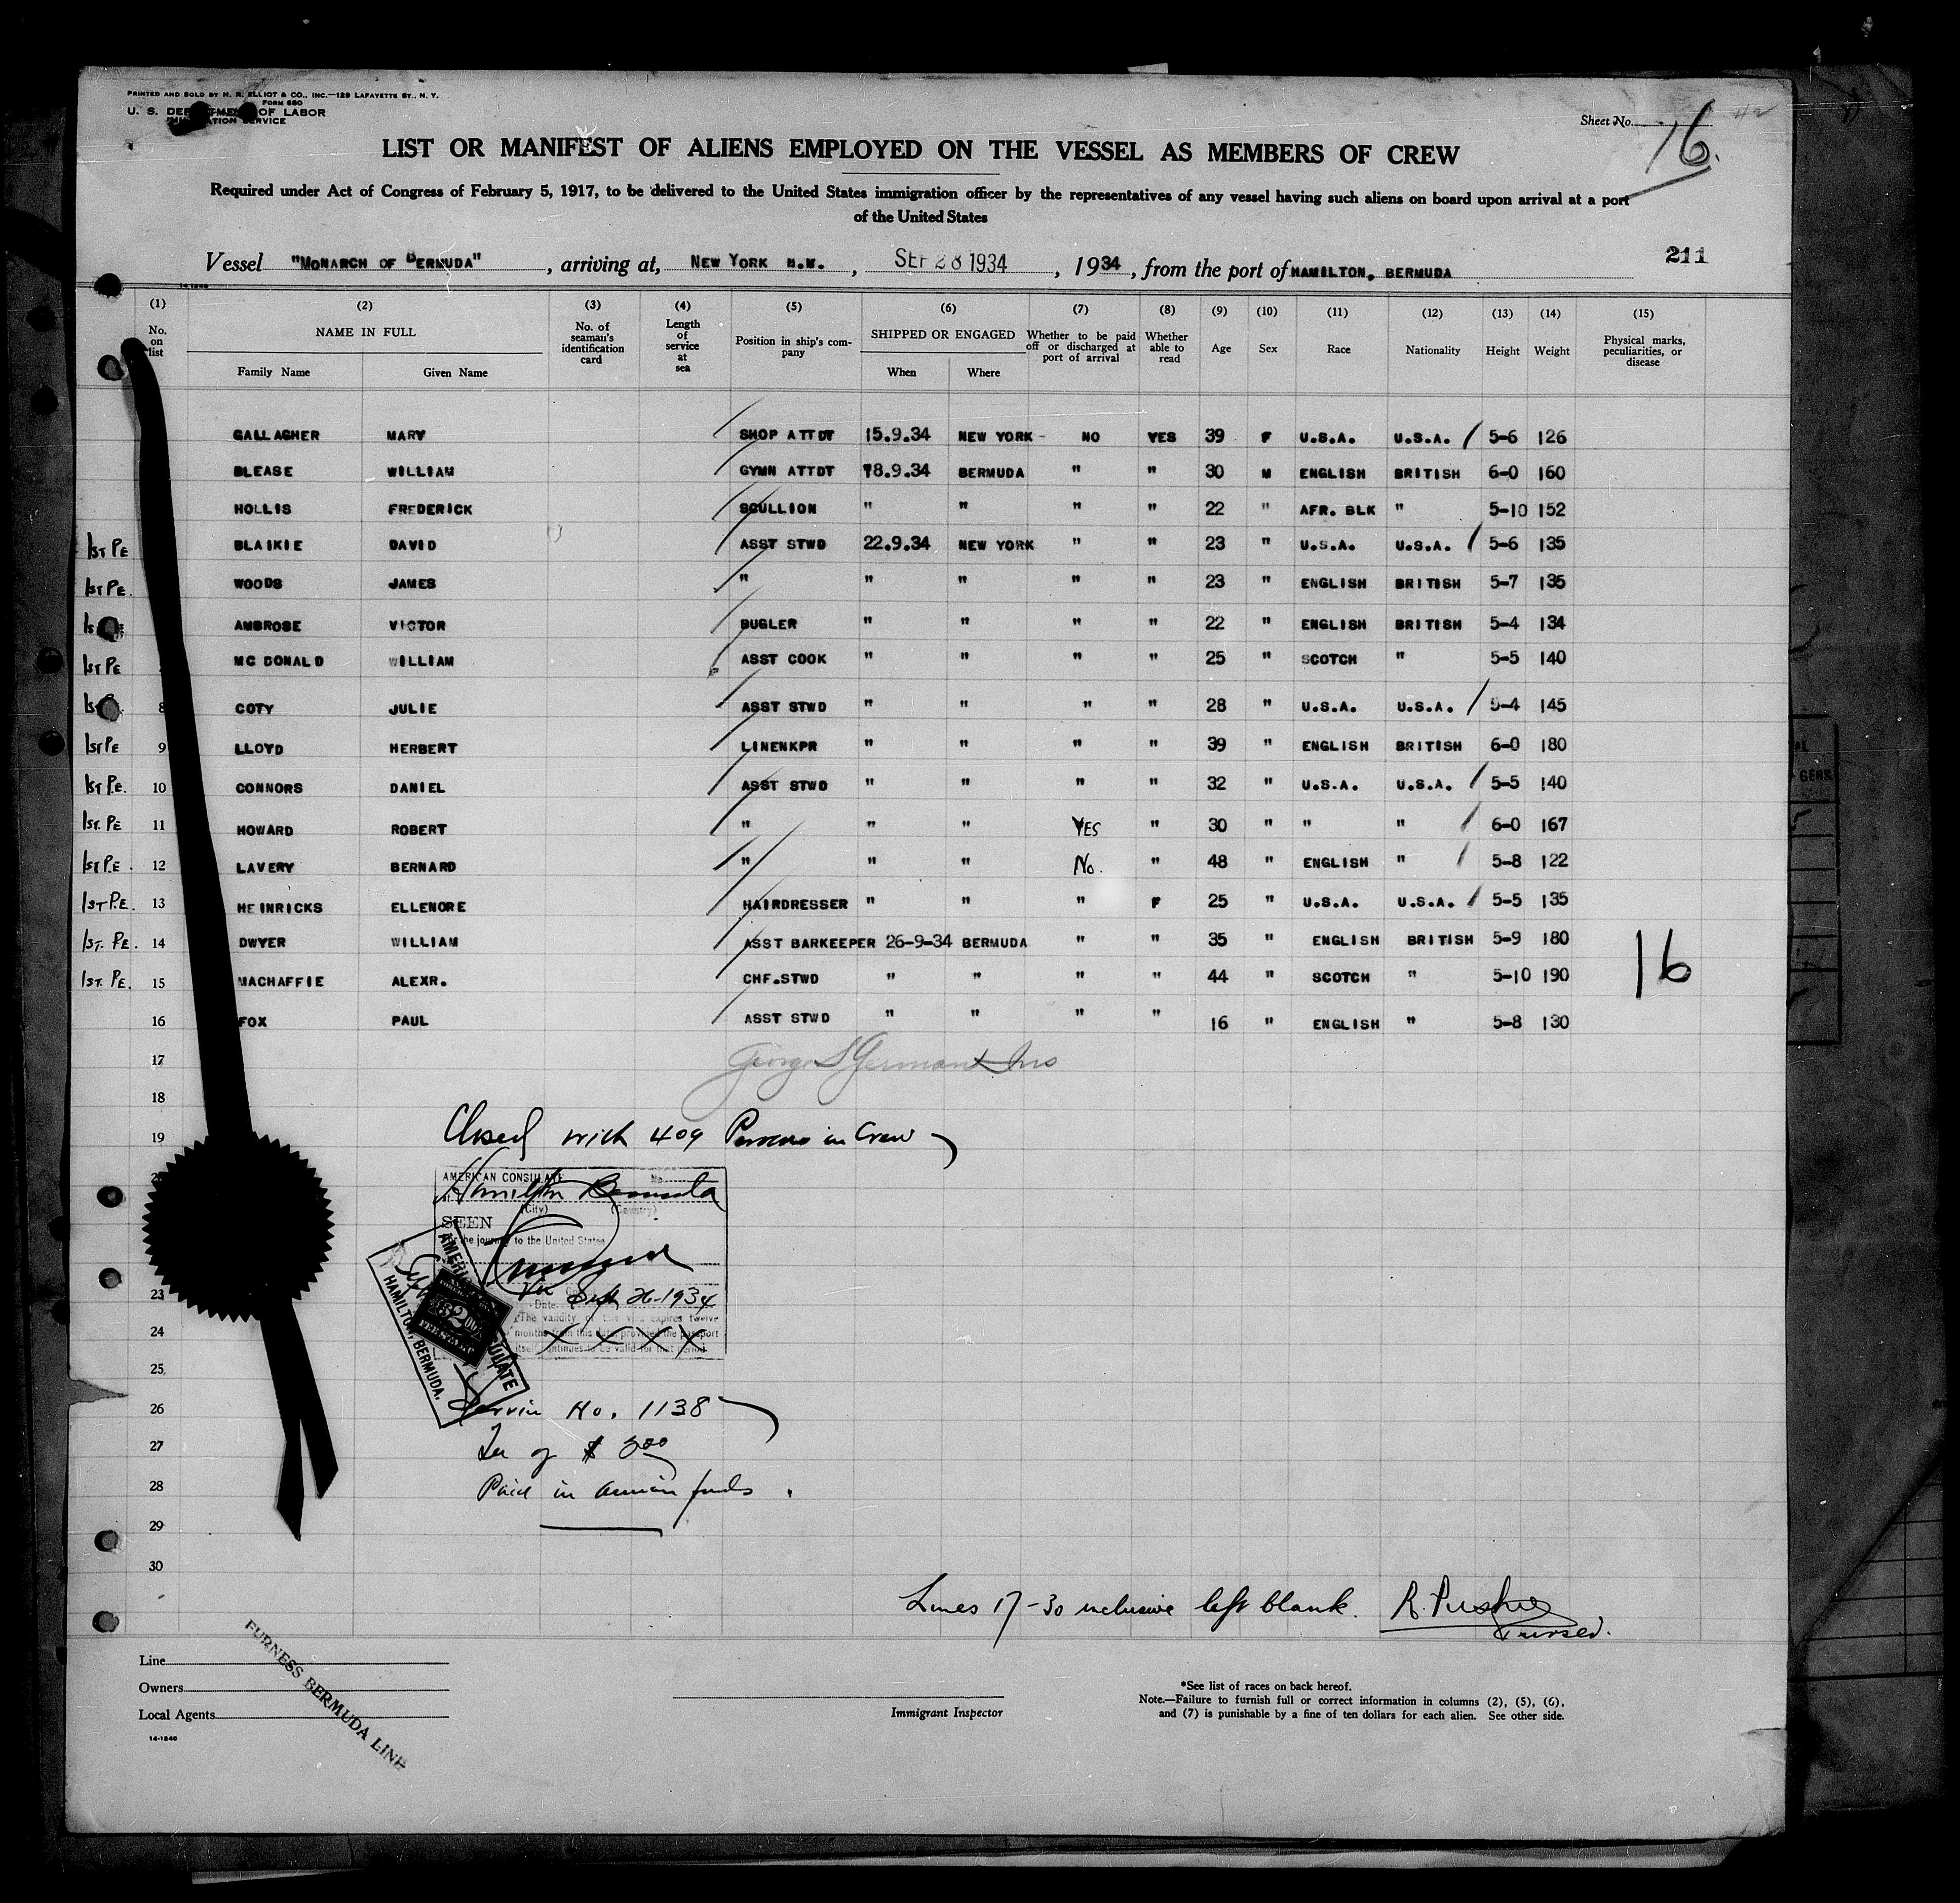 PRINTED AND SOLD BY H. R. ELLIOT & CO., INC.—129 LAFAYETTE ST., N. Y.
FORM 680
U. S. DEPARTMENT OF LABOR
IMMIGRATION SERVICE
Sheet No. 16.
LIST OR MANIFEST OF ALIENS EMPLOYED ON THE VESSEL AS MEMBERS OF CREW
Required under Act of Congress of February 5, 1917, to be delivered to the United States immigration officer by the representatives of any vessel having such aliens on board upon arrival at a port
of the United States
Vessel "MONARCH OF BERMUDA", arriving at, NEW YORK N.Y., SEP 28 1934, 1934, from the port of HAMILTON, BERMUDA 211
14-1240
(1) (2) (3) (4) (5) (6) (7) (8) (9) (10) (11) (12) (13) (14) (15)
No. on list NAME IN FULL Family Name Given Name No. of seaman's identification card Length of service at sea Position in ship's company SHIPPED OR ENGAGED When Where Whether to be paid off or discharged at port of arrival Whether able to read Age Sex Race Nationality Height Weight Physical marks, peculiarities, or disease
GALLAGHER MARY SHOP ATTDT 15.9.34 NEW YORK - NO YES 39 F U.S.A. U.S.A. 5-6 126
BLEASE WILLIAM GYMN ATTDT 18.9.34 BERMUDA " " 30 M ENGLISH BRITISH 6-0 160
HOLLIS FREDERICK SCULLION " " " " 22 " AFR. BLK " 5-10 152
1ST PE BLAIKIE DAVID ASST STWD 22.9.34 NEW YORK " " 23 " U.S.A. U.S.A. 5-6 135
1ST PE. WOODS JAMES " " " " " 23 " ENGLISH BRITISH 5-7 135
AMBROSE VICTOR BUGLER " " " " 22 " ENGLISH BRITISH 5-4 134
1ST PE MC DONALD WILLIAM ASST COOK " " " " 25 " SCOTCH " 5-5 140
8 COTY JULIE ASST STWD " " " " 28 " U.S.A. U.S.A. 5-4 145
1ST PE 9 LLOYD HERBERT LINENKPR " " " " 39 " ENGLISH BRITISH 6-0 180
1ST P.E. 10 CONNORS DANIEL ASST STWD " " " " 32 " U.S.A. U.S.A. 5-5 140
1ST. PE 11 HOWARD ROBERT " " " YES " 30 " " " 6-0 167
1ST P.E. 12 LAVERY BERNARD " " " No. " 48 " ENGLISH " 5-8 122
1ST P.E. 13 HEINRICKS ELLENORE HAIRDRESSER " " " F 25 " U.S.A. U.S.A. 5-5 135
1ST. PE. 14 DWYER WILLIAM ASST BARKEEPER 26-9-34 BERMUDA " " 35 " ENGLISH BRITISH 5-9 180
1ST. PE. 15 MACHAFFIE ALEXR. CHF.STWD " " " " 44 " SCOTCH " 5-10 190 16
16 FOX PAUL ASST STWD " " " " 16 " ENGLISH " 5-8 130
17
18
19 Closed with 409 Persons in Crew
AMERICAN CONSULATE No.
Hamilton Bermuda
(City) (Country)
SEEN
For the journey to the United States
Date Sept 26-1934
The validity of this visa expires twelve
months from this date, provided the passport
itself continues to be valid for that period
AMERICAN CONSULATE
HAMILTON, BERMUDA.
23
24
25
26 Service No. 1138
27 Fee of $
28 Paid in American funds.
29
30
Lines 17-30 inclusive left blank. Purser.
Line
Owners
Local Agents
FURNESS BERMUDA LINE
14-1240
Immigrant Inspector
*See list of races on back hereof.
Note.—Failure to furnish full or correct information in columns (2), (5), (6),
and (7) is punishable by a fine of ten dollars for each alien. See other side.